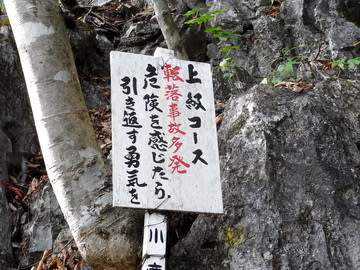 上級コース
転落事故多発
危険を感じたら、
引き返す勇気を
小